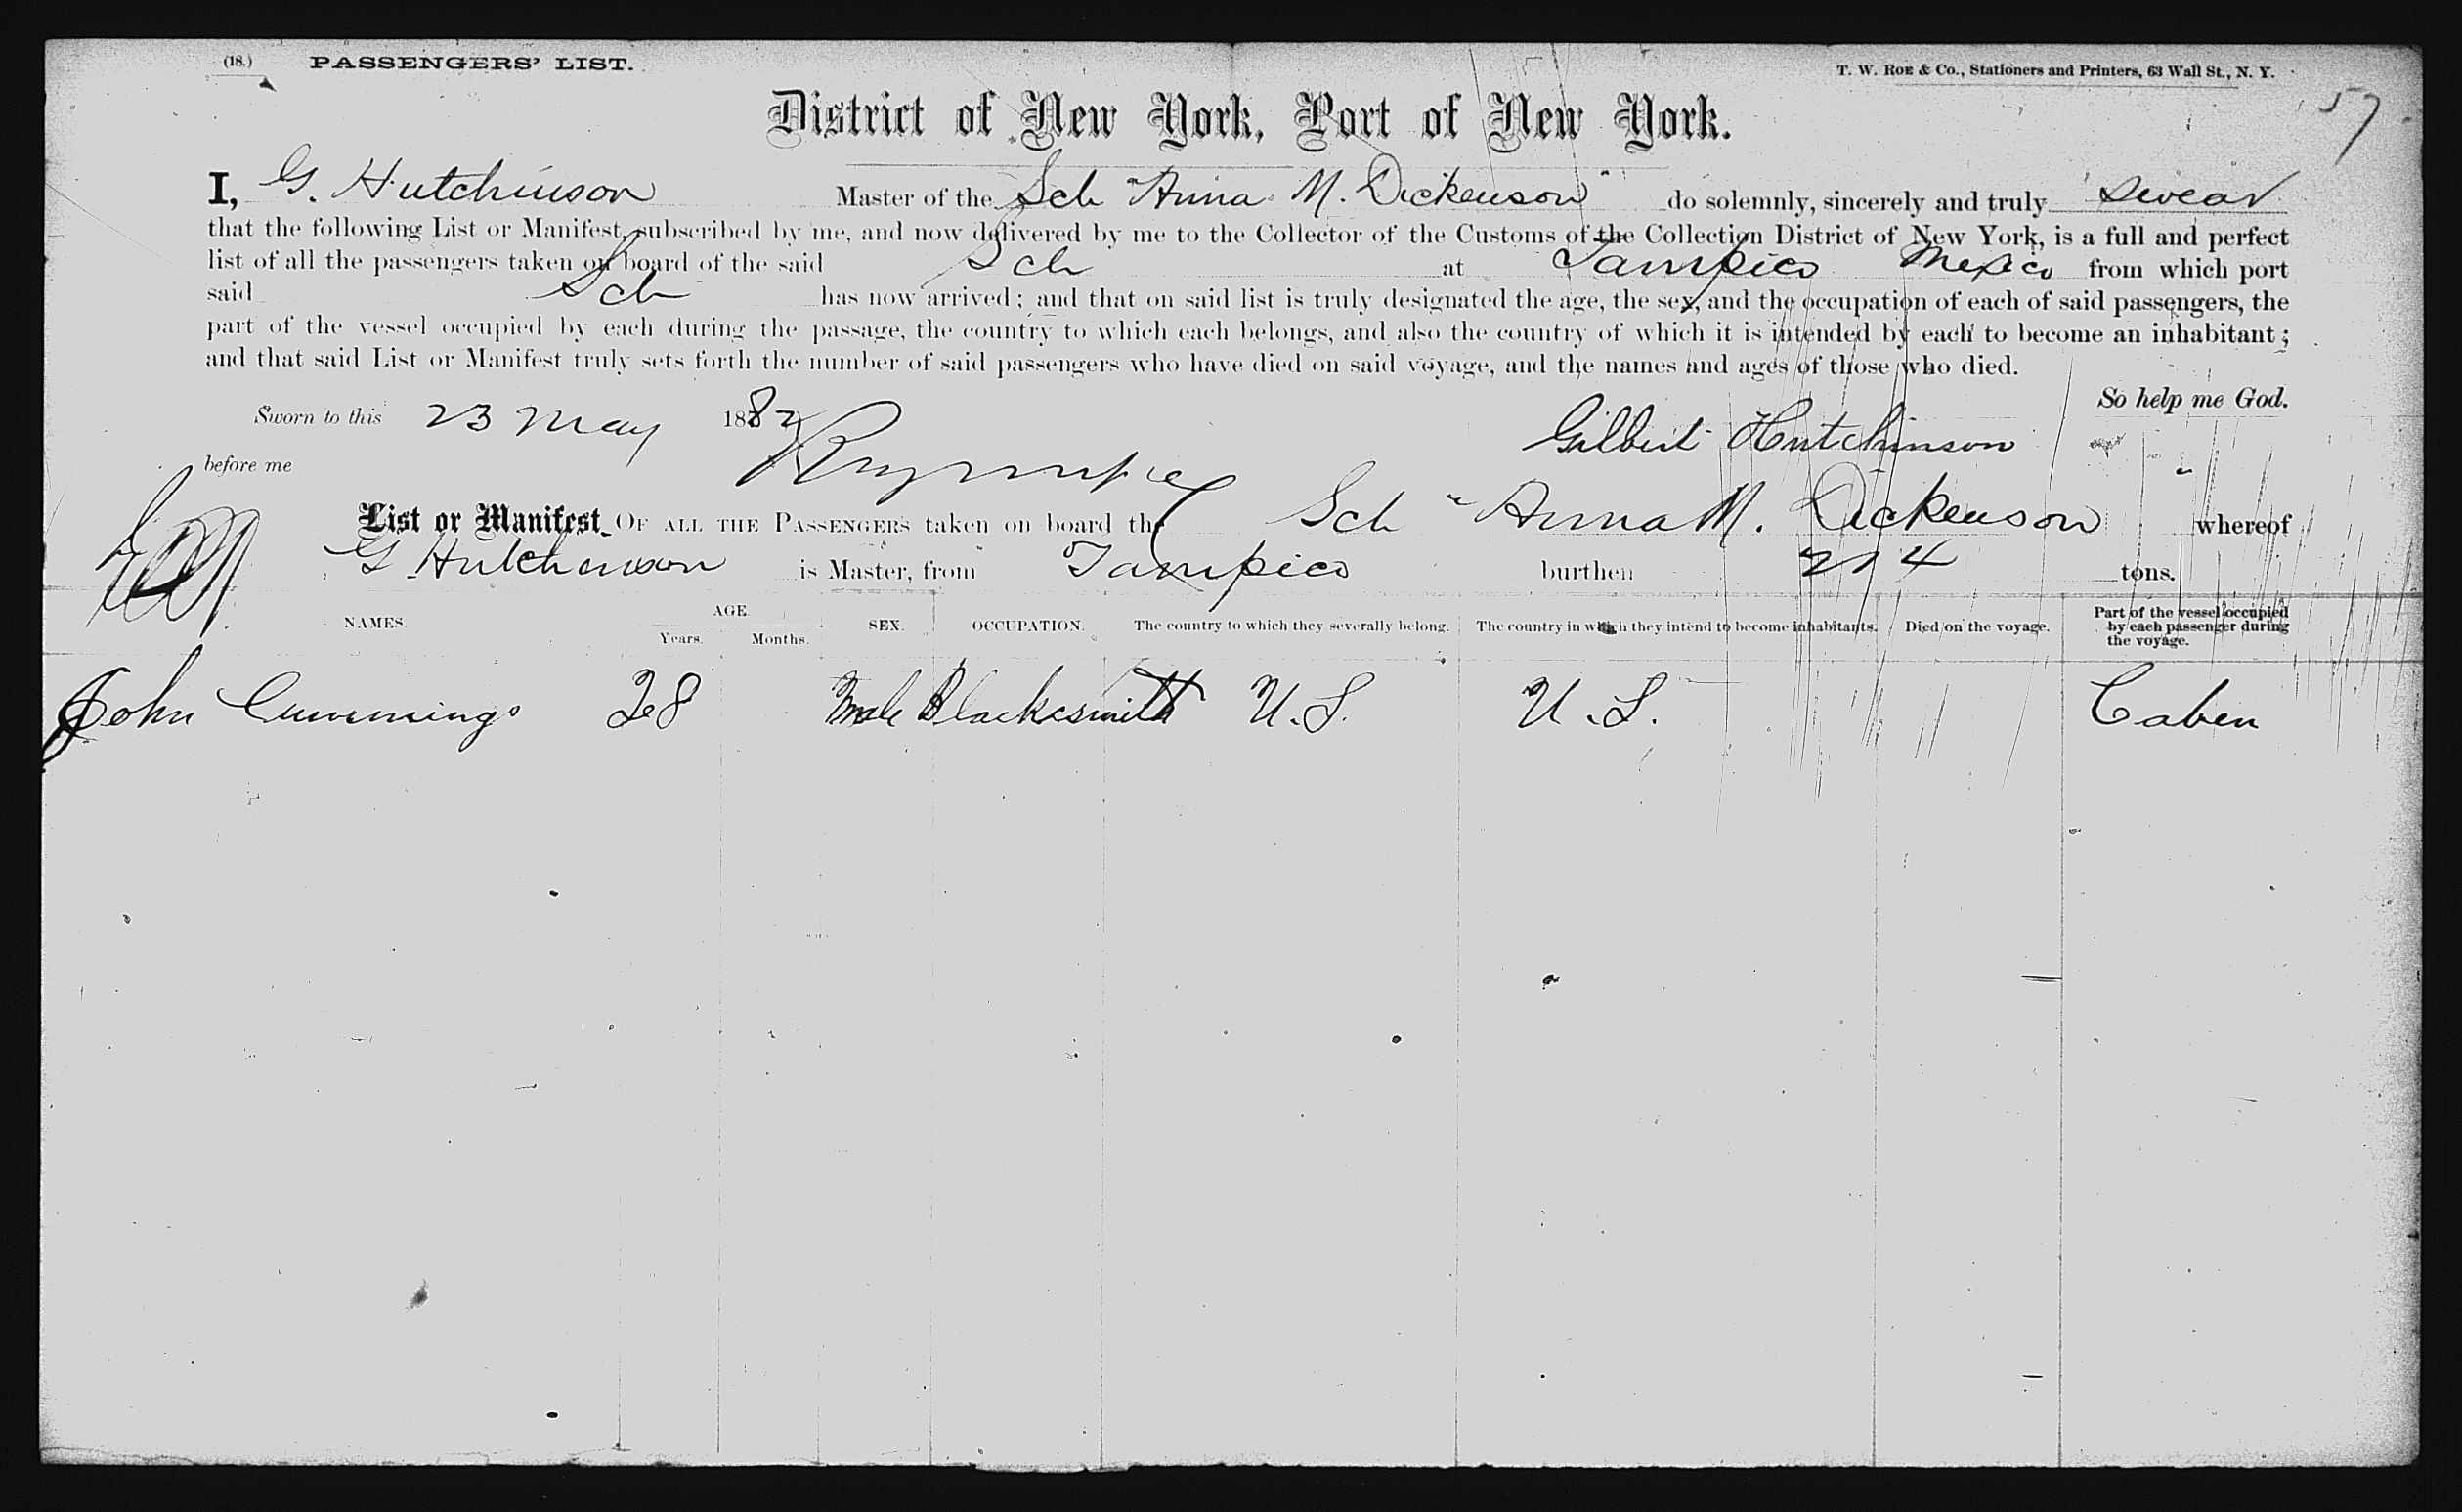 (18.) PASSENGERS' LIST. T. W. ROE & Co., Stationers and Printers, 63 Wall St., N. Y.
57
District of New York, Port of New York.
I, G. Hutchinson Master of the Sch "Anna M. Dickenson" do solemnly, sincerely and truly swear
that the following List or Manifest, subscribed by me, and now delivered by me to the Collector of the Customs of the Collection District of New York, is a full and perfect
list of all the passengers taken on board of the said Sch at Tampico Mexico from which port
said Sch has now arrived; and that on said list is truly designated the age, the sex, and the occupation of each of said passengers, the
part of the vessel occupied by each during the passage, the country to which each belongs, and also the country of which it is intended by each to become an inhabitant;
and that said List or Manifest truly sets forth the number of said passengers who have died on said voyage, and the names and ages of those who died.
So help me God.
Sworn to this 23 May 1882
Gilbert Hutchinson
before me
List or Manifest OF ALL THE PASSENGERS taken on board the Sch "Anna M. Dickenson" whereof
G Hutchinson is Master, from Tampico burthen 214 tons.
NAMES. AGE. Years. Months. SEX. OCCUPATION. The country to which they severally belong. The country in which they intend to become inhabitants. Died on the voyage. Part of the vessel occupied by each passenger during the voyage.
John Cummings 28 Male Blacksmith U.S. U.S. Caben